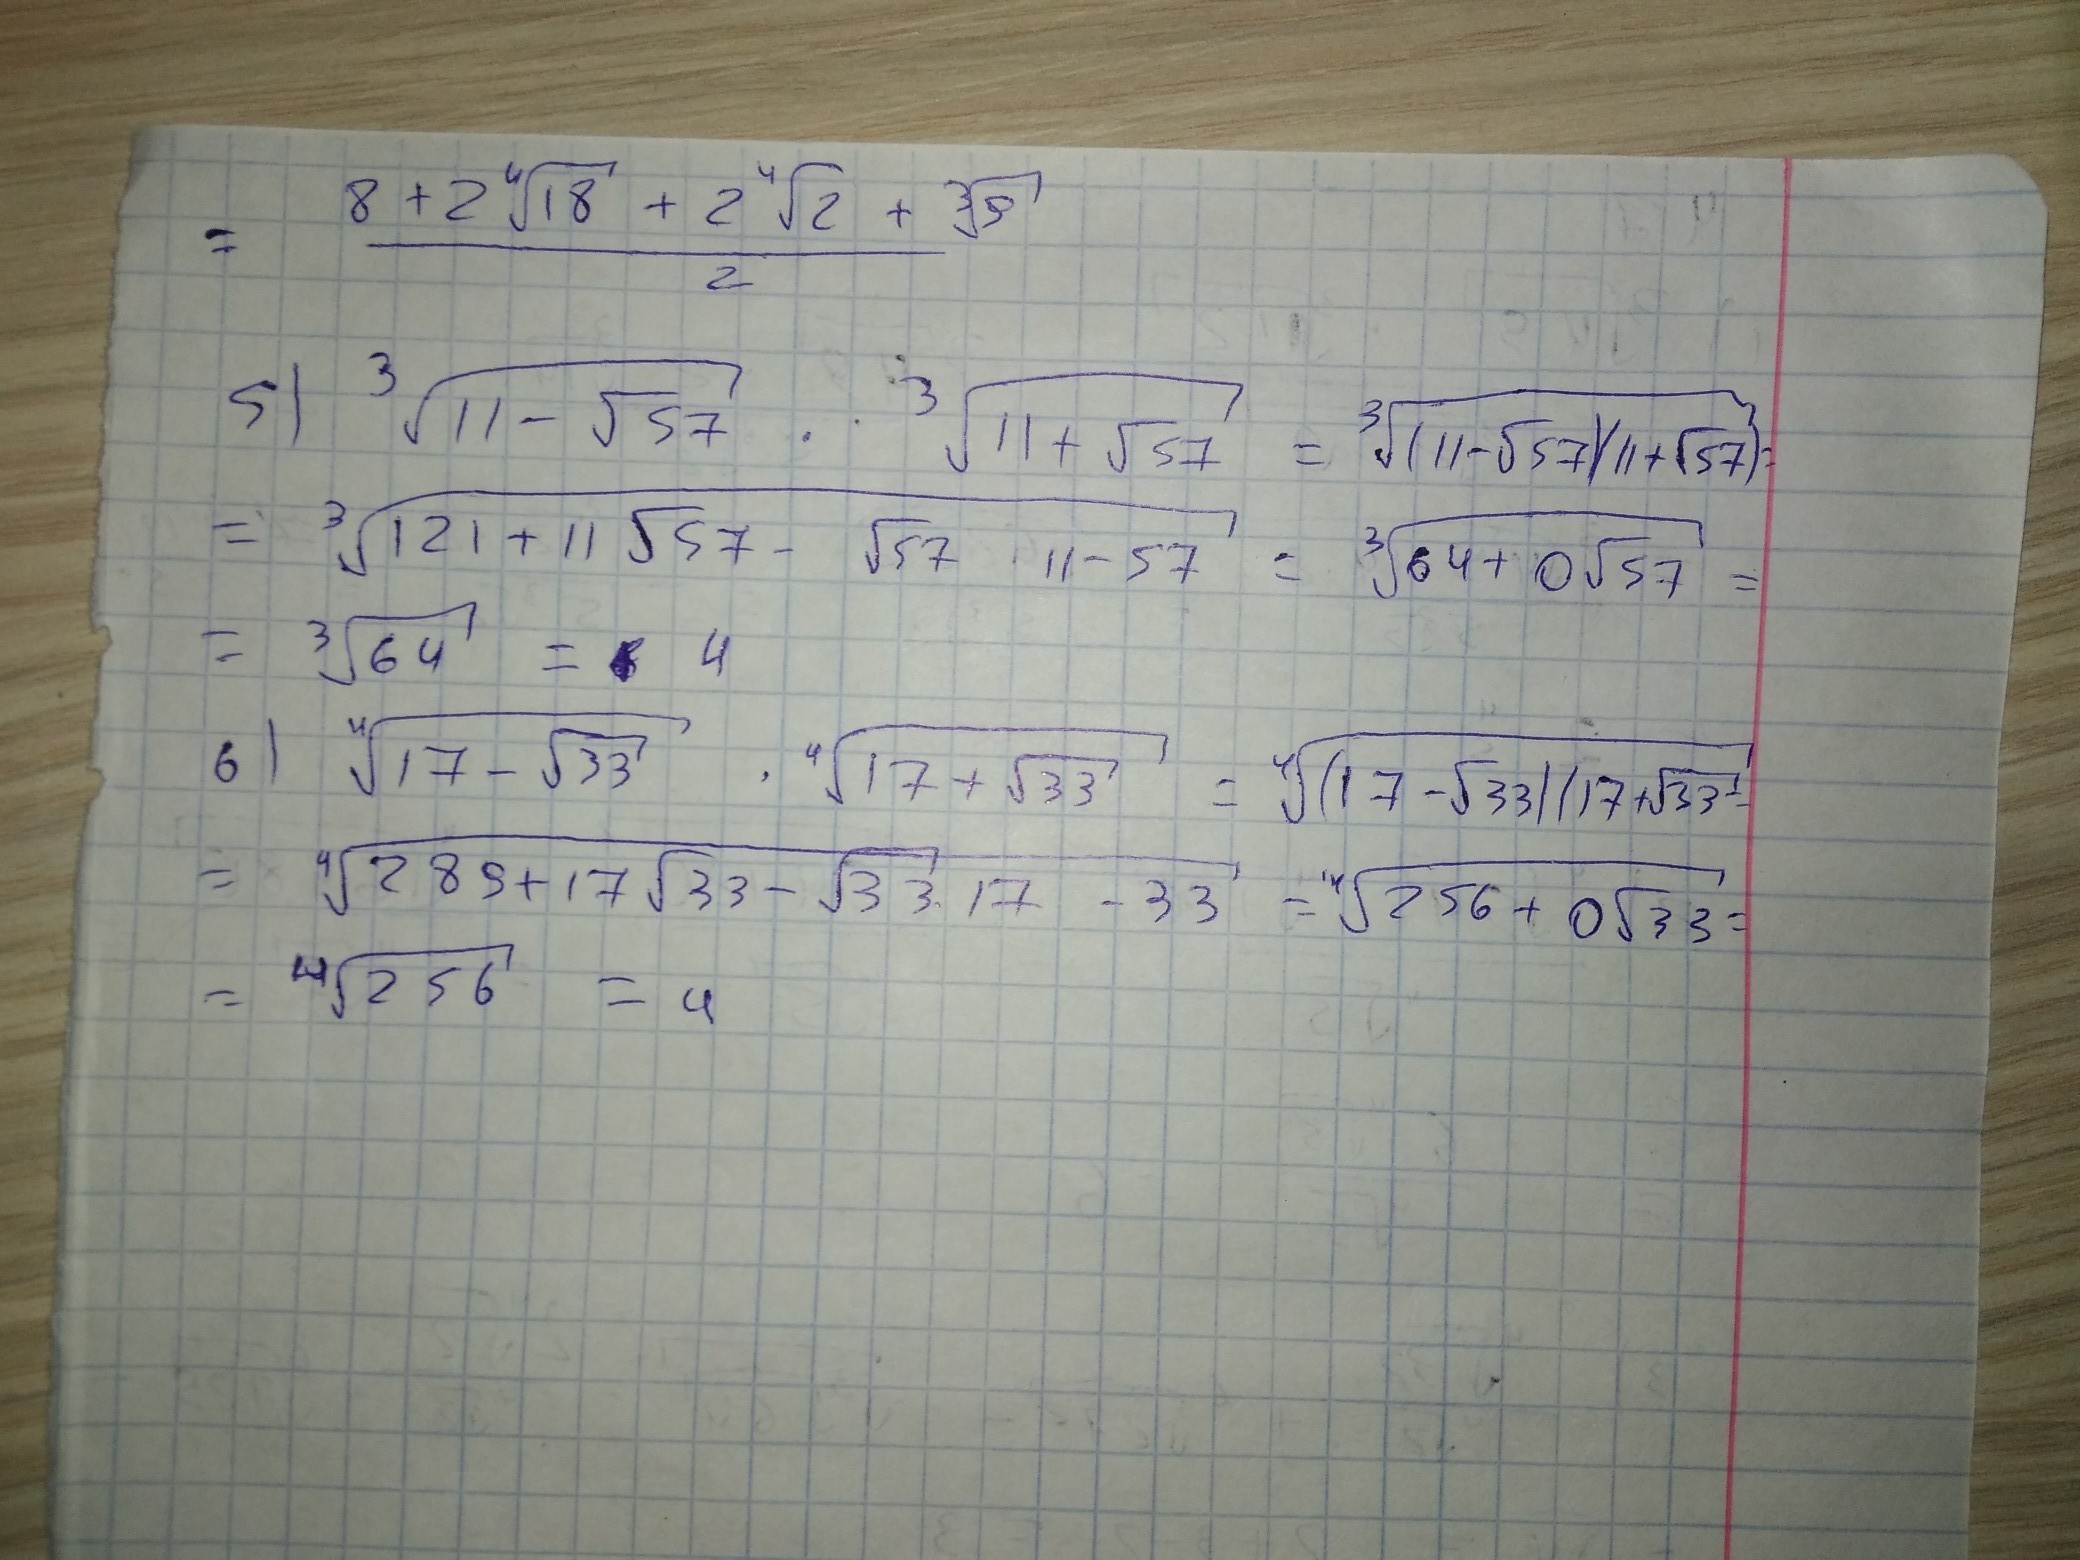 = (8 + 2⁴√18 + 2⁴√2 + ³√9) / 2
5) ³√(11 - √57) · ³√(11 + √57) = ³√((11 - √57)(11 + √57)) =
= ³√(121 + 11√57 - √57 · 11 - 57) = ³√(64 + 0√57) =
= ³√64 = 4
6) ⁴√(17 - √33) · ⁴√(17 + √33) = ⁴√((17 - √33)(17 + √33)) =
= ⁴√(289 + 17√33 - √33 · 17 - 33) = ⁴√(256 + 0√33) =
= ⁴√256 = 4